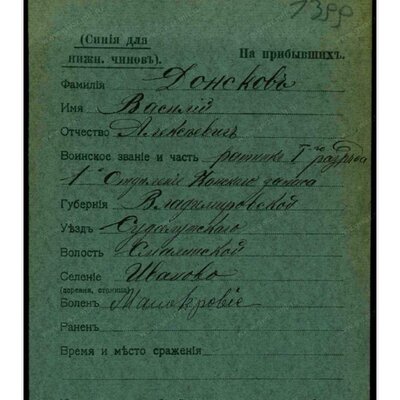 1399
(Синія для
нижн. чиновъ).
На прибывшихъ.
Фамилія Донсковъ
Имя Василій
Отчество Алексѣевичъ
Воинское званіе и часть ратникъ I го разряда
1е Отдѣленіе Конскаго запаса
Губернія Владимировской
Уѣздъ Судогутскаго
Волость
Селеніе Иваново
(деревня, станица)
Боленъ Малокровіе
Раненъ
Время и мѣсто сраженія